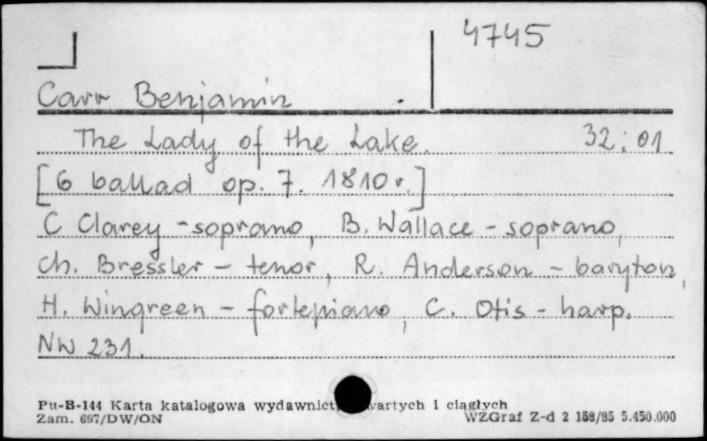 4745
Carr Benjamin.
The Lady of the Lake. 32:01
[6 ballad op. 7. 1810r.]
C Clarey - soprano, B. Wallace - soprano,
Ch. Bressler - tenor, R. Anderson - baryton,
H. Wingreen - fortepiano, C. Otis - harp.
NW 231.
Pu-B-144 Karta katalogowa wydawnict wartych i ciągłych
Zam. 697/DW/ON WZGraf Z-d 2 168/85 5.450.000